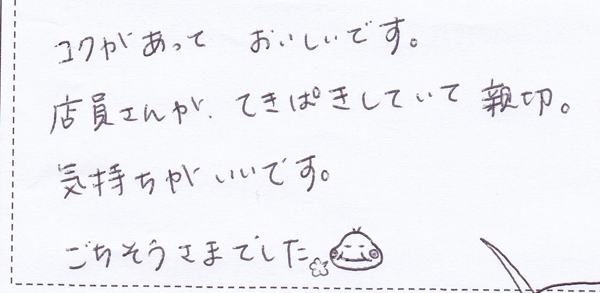 コクがあって おいしいです。
店員さんが、てきぱきしていて 親切。
気持ちがいいです。
ごちそうさまでした